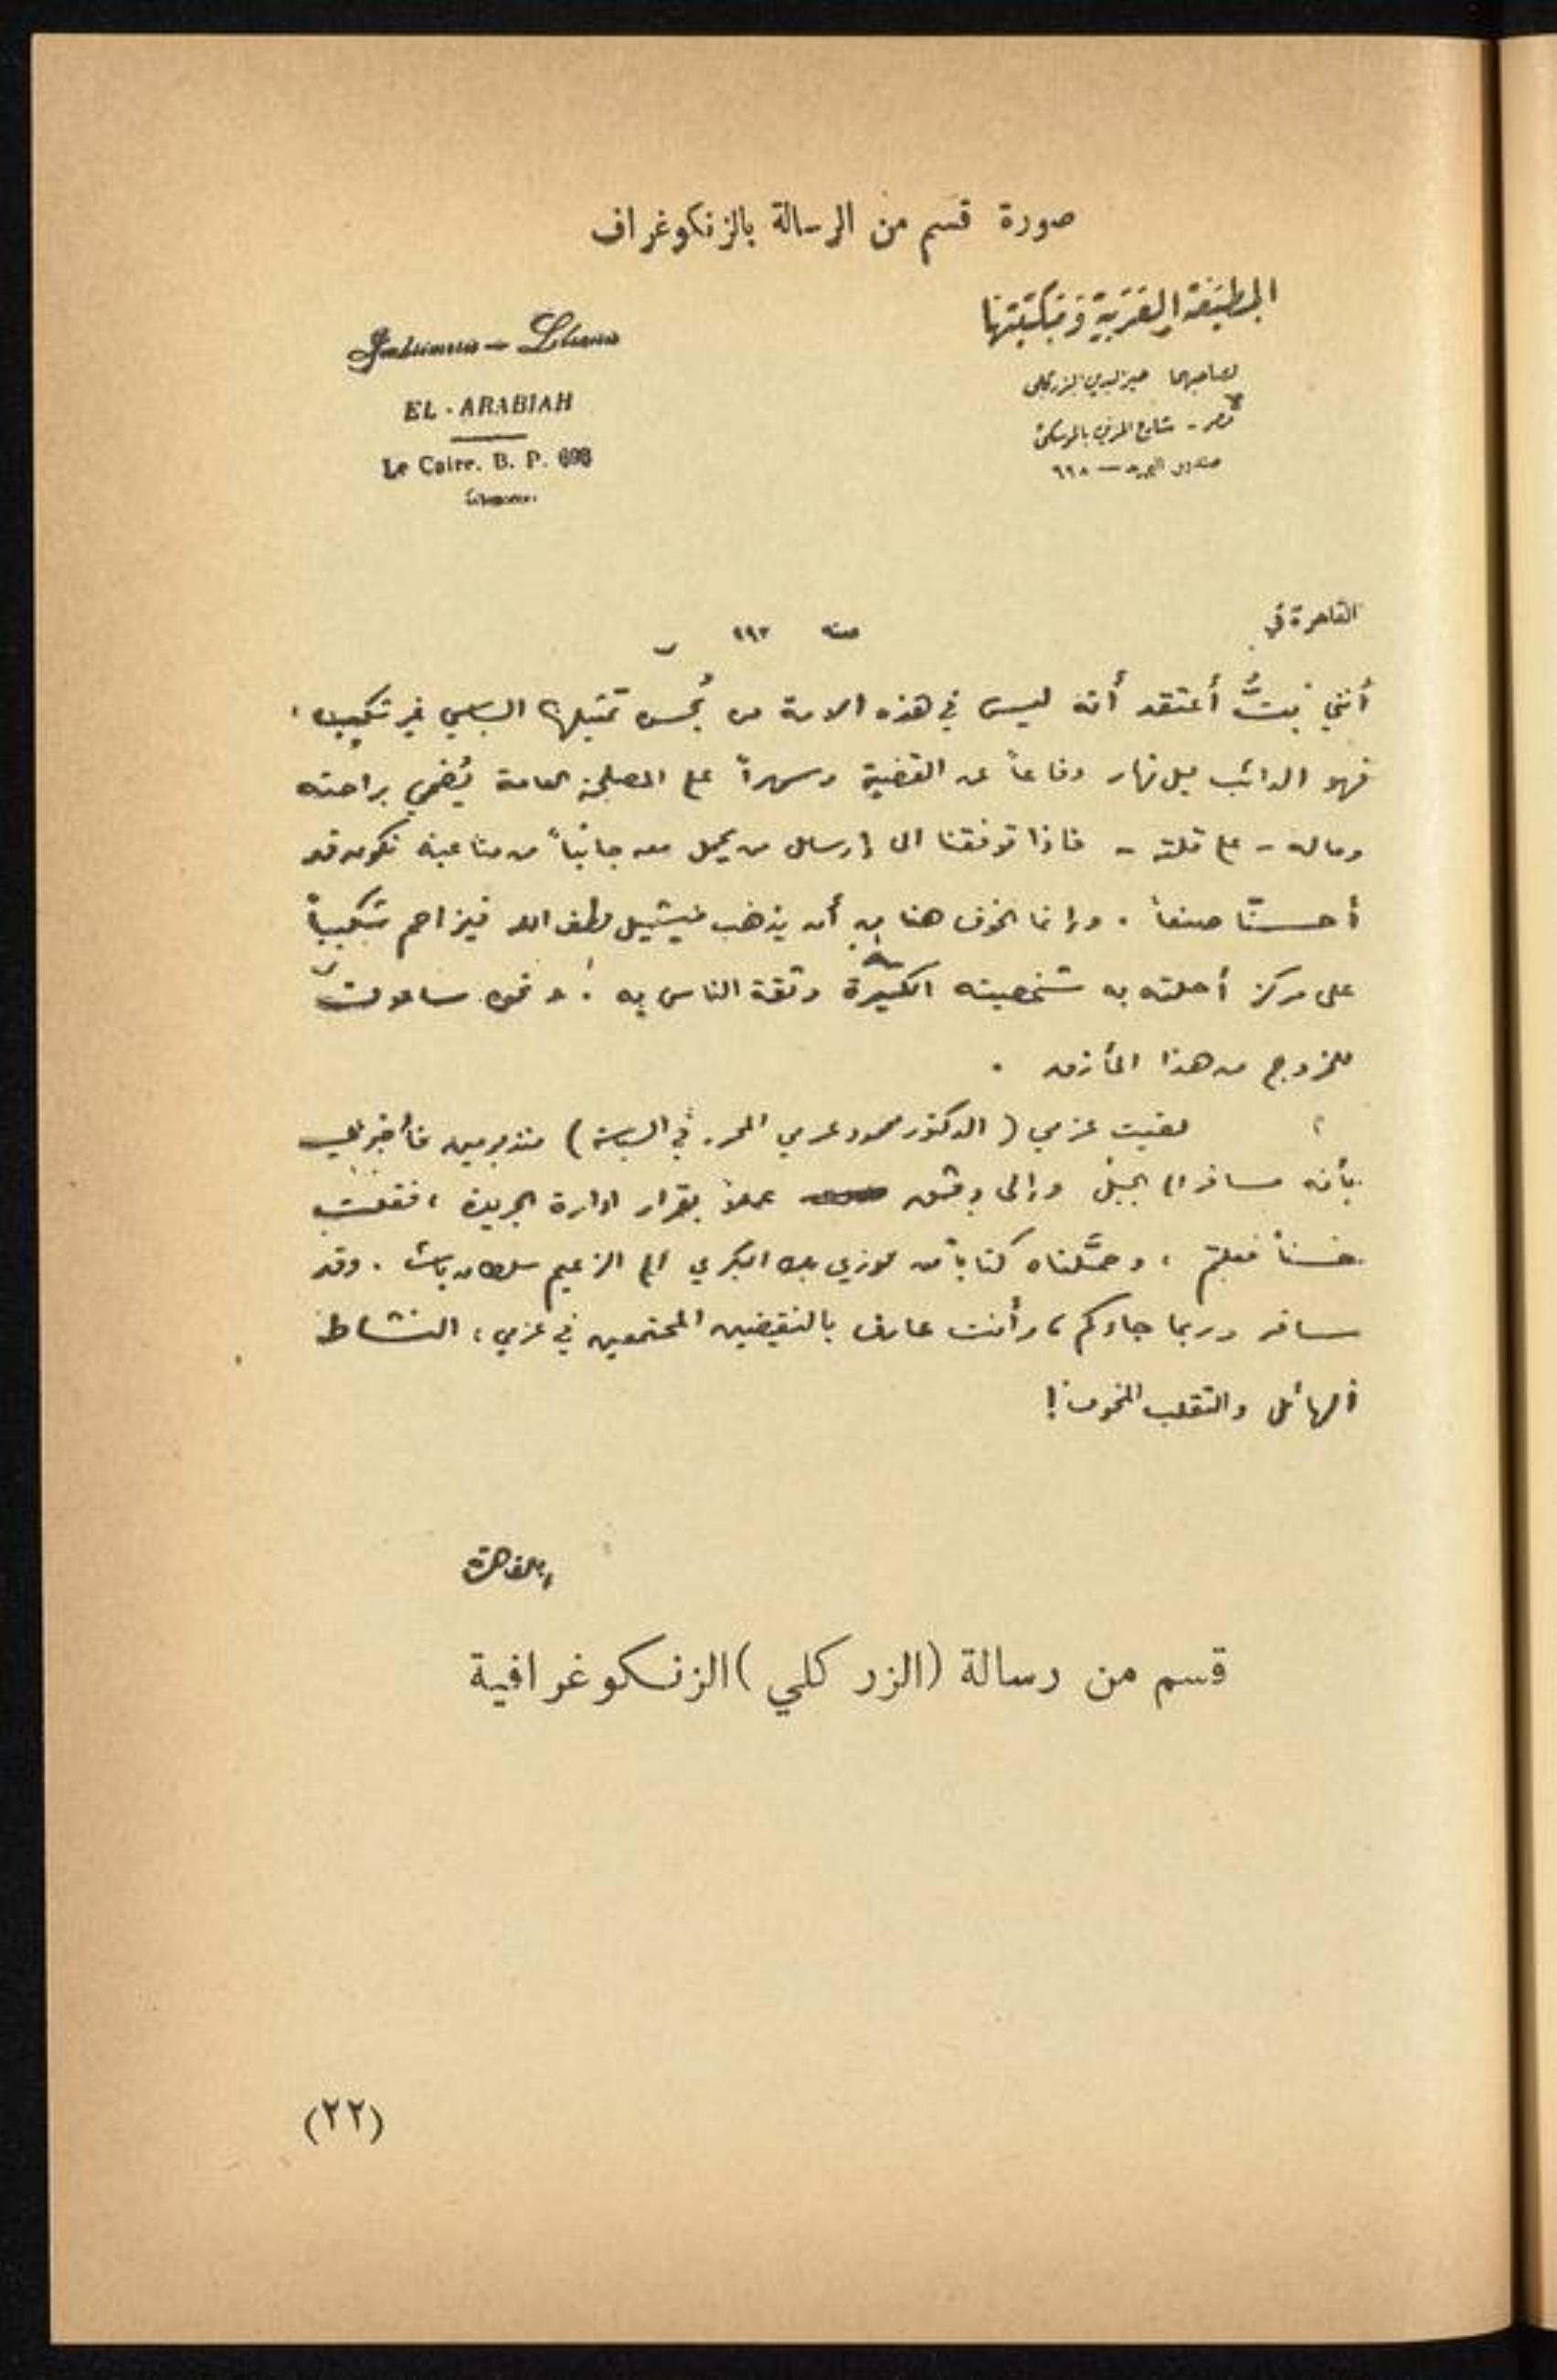 صورة قسم من الرسالة بالزنكوغراف
المطبعة العربية ومكتبتها
لصاحبها خير الدين الزركلي
مصر - شارع المزين بالموسكي
صندوق البريد — ٦٩٨
Imprimerie - Librairie
EL - ARABIAH
Le Caire. B. P. 698
القاهرة في سنة ١٩٢
أنني بتُّ أعتقد أنه ليس في هذه الامة من يُحسن تمثيلها السياسي غير شكيب،
فهو الدائب ليل نهار دفاعاً عن القضية وسهراً على المصلحة العامة يُضحي براحته
وماله - على قلته - فاذا توفقنا الى إرسال من يحمل معه جانباً من متاعبه نكون قد
أحسنّا صنعاً. وإنما الخوف هنا من أن يذهب ميشيل لطف الله فيزاحم شكيباً
على مركز أحلته به شخصيته الكبيرة وثقة الناس به. ونحن ساعون
للخروج من هذا المأزق.
لقيت عزمي (الدكتور محمود عزمي المحرر في السياسة) منذ يومين فأخبرني
بأنه مسافر الى الجبل وإلى دمشق عملاً بقرار ادارة الجريدة، فقلت
حسناً فعلتم، وحمّلناه كتاباً من فوزي بك البكري الى الزعيم سلطان باشا. وقد
سافر وربما جاءكم، وأنت عارف بالنقيضين المجتمعين في عزمي، النشاط
الهائل والتقلب المخوف!
بالقاهرة
قسم من رسالة (الزركلي) الزنكوغرافية
(٢٢)